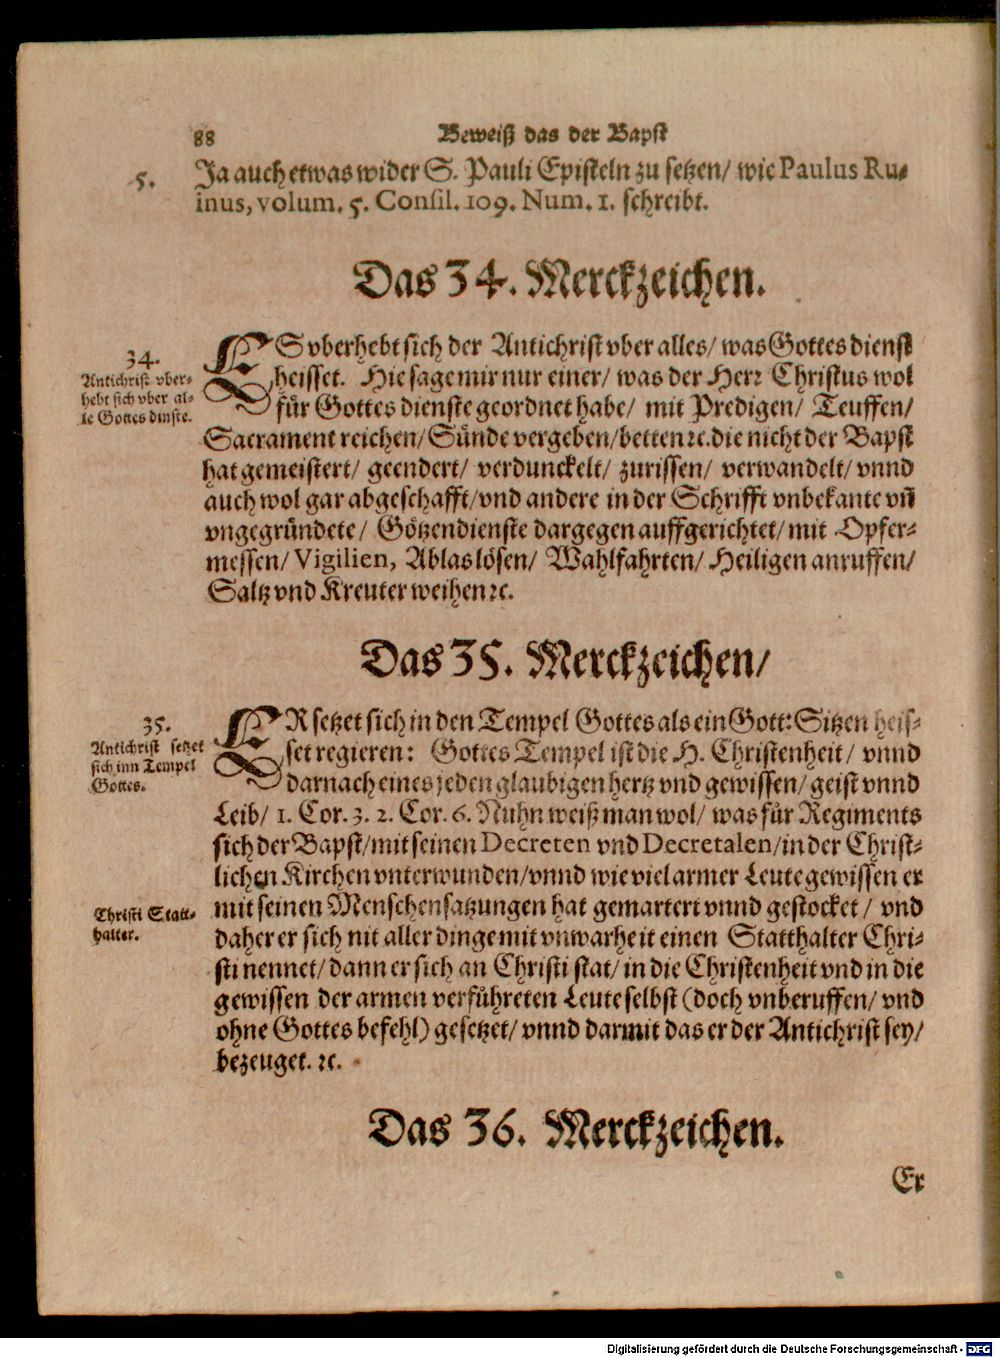 88
Beweiß das der Bapst
5.
Ja auch etwas wider S. Pauli Episteln zu setzen/ wie Paulus Ru-
inus, volum. 5. Consil. 109. Num. 1. schreibt.
Das 34. Merckzeichen.
34.
Antichrist vber-
hebt sich vber al-
le Gottes dinste.
ES vberhebt sich der Antichrist vber alles/ was Gottes dienst
heisset. Hie sage mir nur einer/ was der Herr Christus wol
für Gottes dienste geordnet habe/ mit Predigen/ Teuffen/
Sacrament reichen/ Sünde vergeben/ betten ꝛc. die nicht der Bapst
hat gemeistert/ geendert/ verdunckelt/ zurissen/ verwandelt/ vnnd
auch wol gar abgeschafft/ vnd andere in der Schrifft vnbekante vn̄
vngegründete/ Götzendienste dargegen auffgerichtet/ mit Opfer-
messen/ Vigilien, Ablas lösen/ Wahlfahrten/ Heiligen anruffen/
Saltz vnd Kreuter weihen ꝛc.
Das 35. Merckzeichen/
35.
Antichrist setzet
sich inn Tempel
Gottes.
ER setzet sich in den Tempel Gottes als ein Gott: Sitzen heis-
set regieren: Gottes Tempel ist die H. Christenheit/ vnnd
darnach eines jeden glaubigen hertz vnd gewissen/ geist vnnd
Leib/ 1. Cor. 3. 2. Cor. 6. Nuhn weiß man wol/ was für Regiments
sich der Bapst/ mit seinen Decreten vnd Decretalen/ in der Christ-
lichen Kirchen vnterwunden/ vnnd wie viel armer Leute gewissen er
Christi Statt-
halter.
mit seinen Menschensatzungen hat gemartert vnnd gestocket/ vnd
daher er sich nit aller dinge mit vnwarheit einen Statthalter Chri-
sti nennet/ dann er sich an Christi stat/ in die Christenheit vnd in die
gewissen der armen verführeten Leute selbst (doch vnberuffen/ vnd
ohne Gottes befehl) gesetzet/ vnnd darmit das er der Antichrist sey/
bezeuget. ꝛc.
Das 36. Merckzeichen.
Er
Digitalisierung gefördert durch die Deutsche Forschungsgemeinschaft - DFG